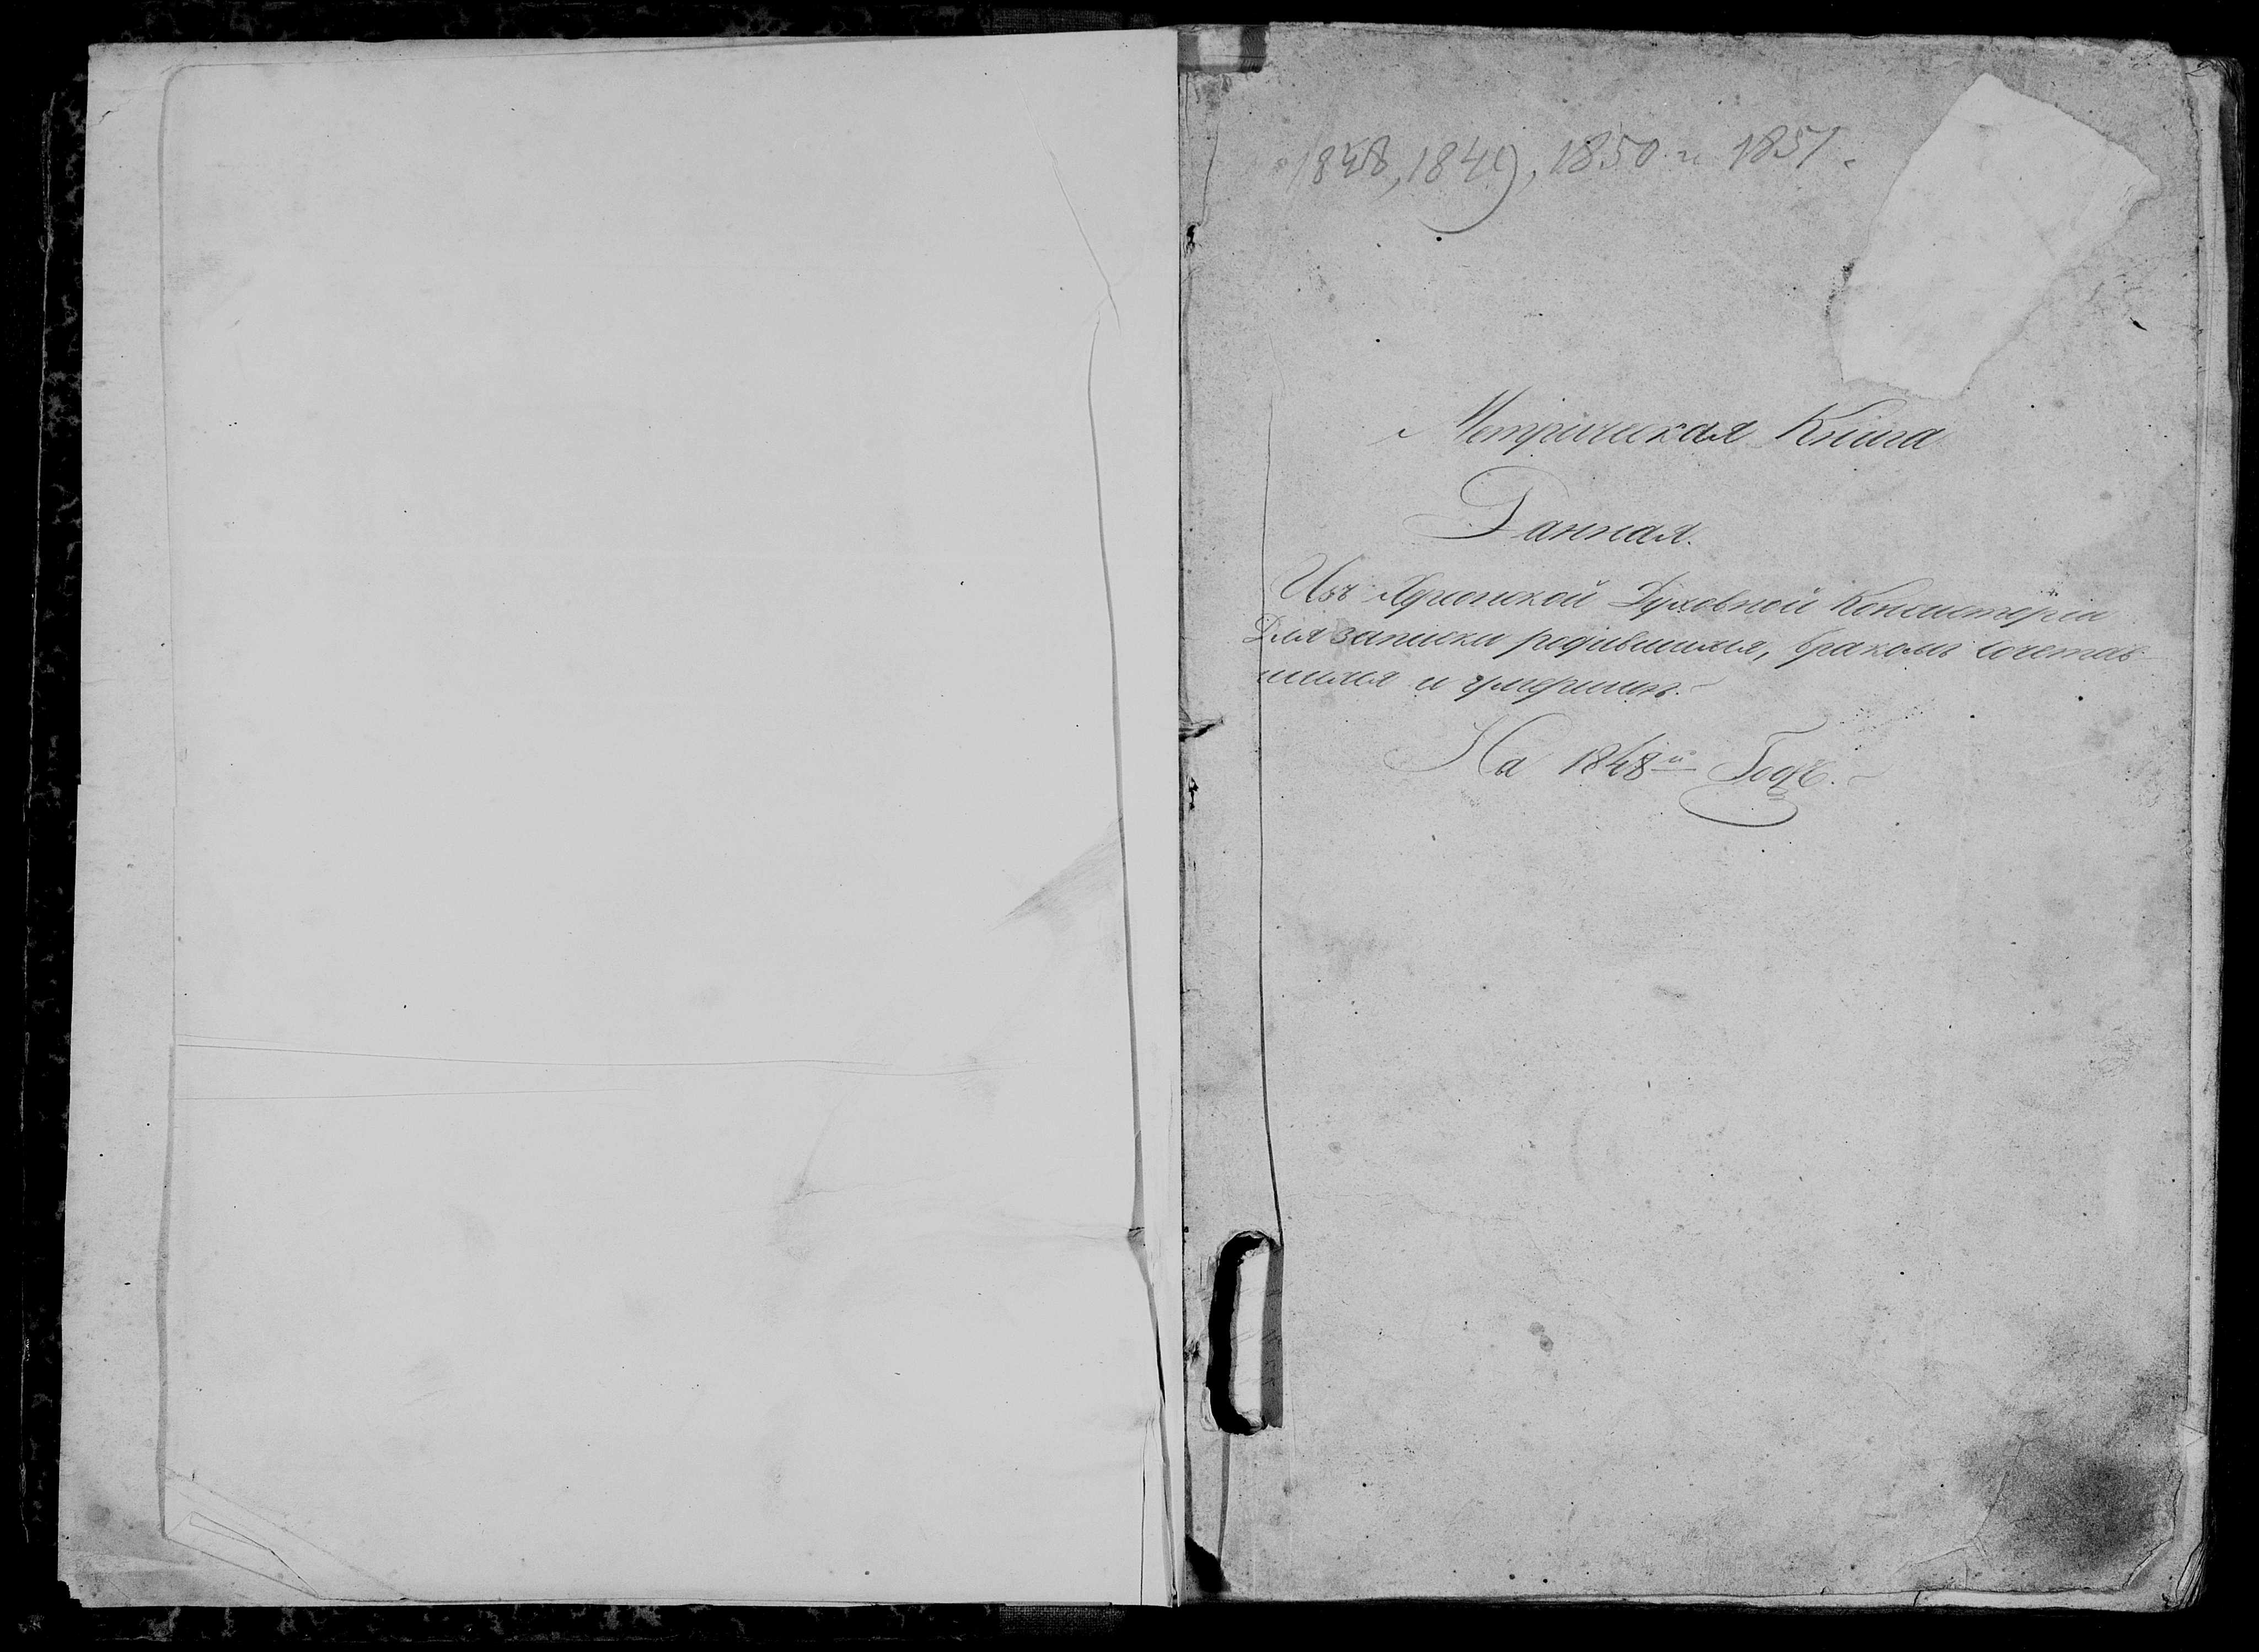 1848, 1849, 1850 и 1851.
Метрическая Книга
Данная.
Изъ Херсонской Духовной Консисторіи
Для записки родившихся, бракомъ сочетав-
шихся и умершихъ.
На 1848й Годъ.